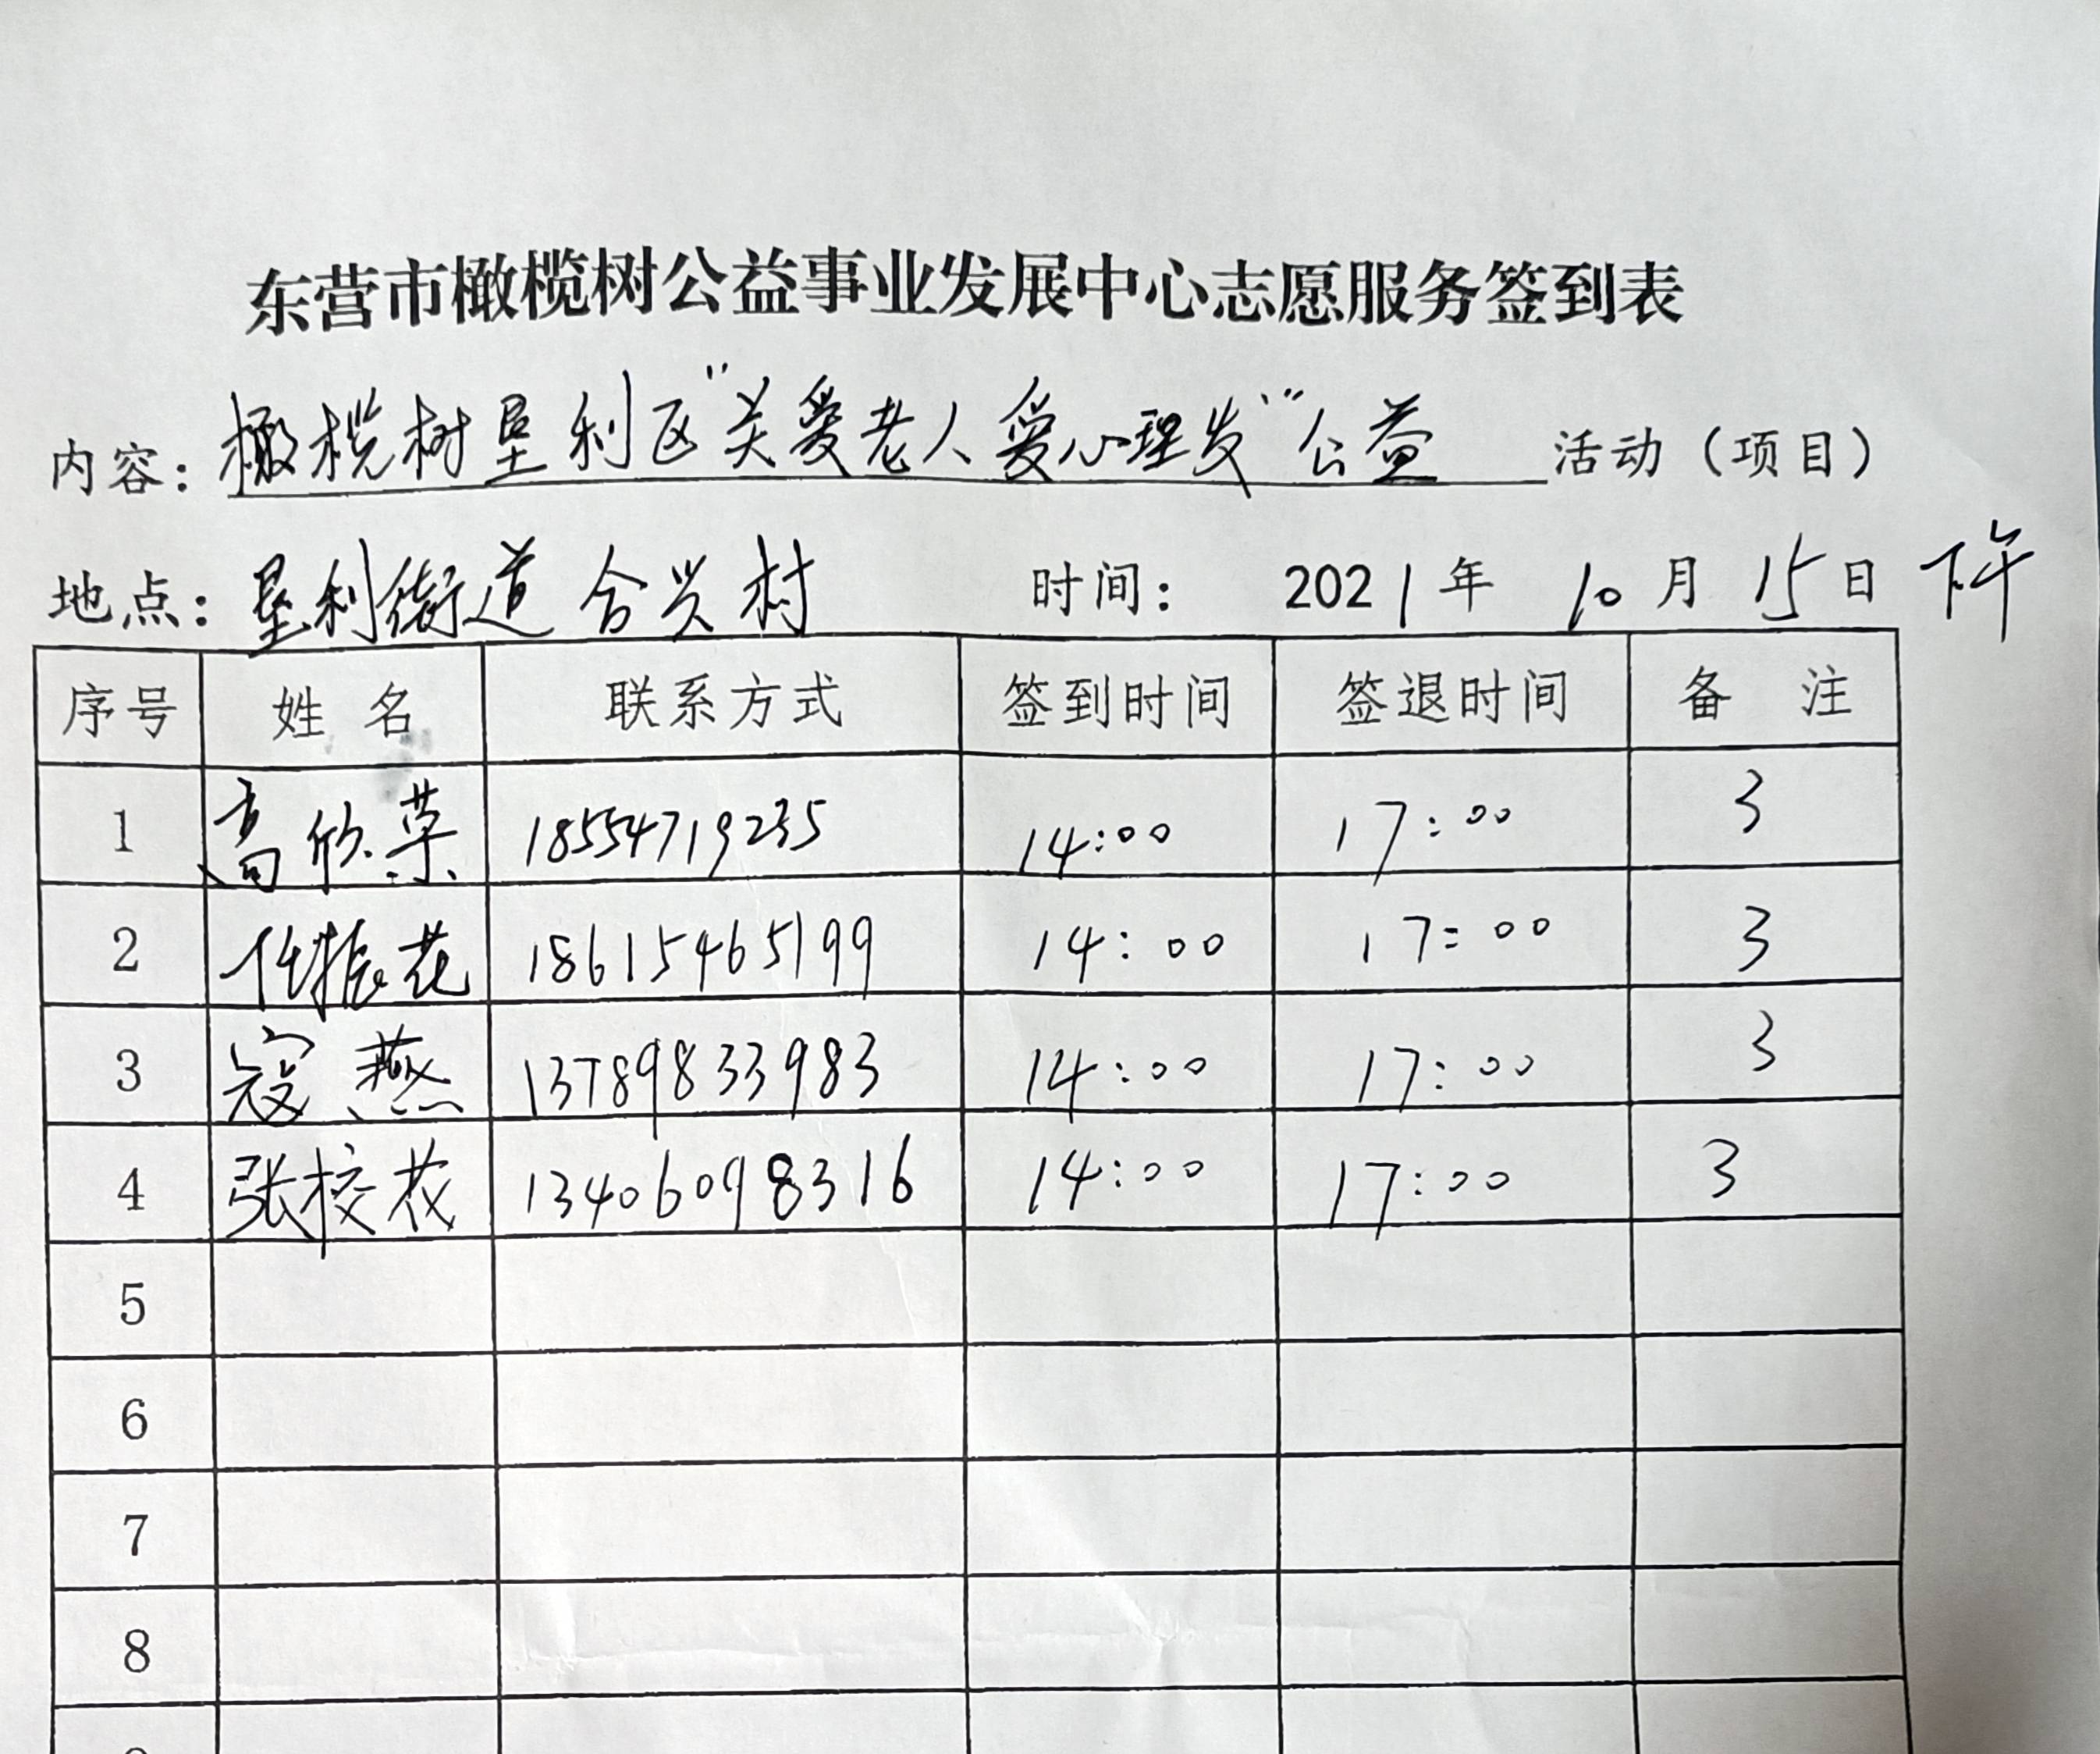 东营市橄榄树公益事业发展中心志愿服务签到表
内容：橄榄树垦利区“关爱老人爱心理发”公益 活动（项目）
地点：垦利街道合兴村 时间： 2021年 10月 15日 下午
序号 姓名 联系方式 签到时间 签退时间 备注
1 高欣菜 18554719235 14:00 17:00 3
2 任振花 18615465199 14:00 17:00 3
3 寇燕 13789833983 14:00 17:00 3
4 张校花 13406098316 14:00 17:00 3
5
6
7
8